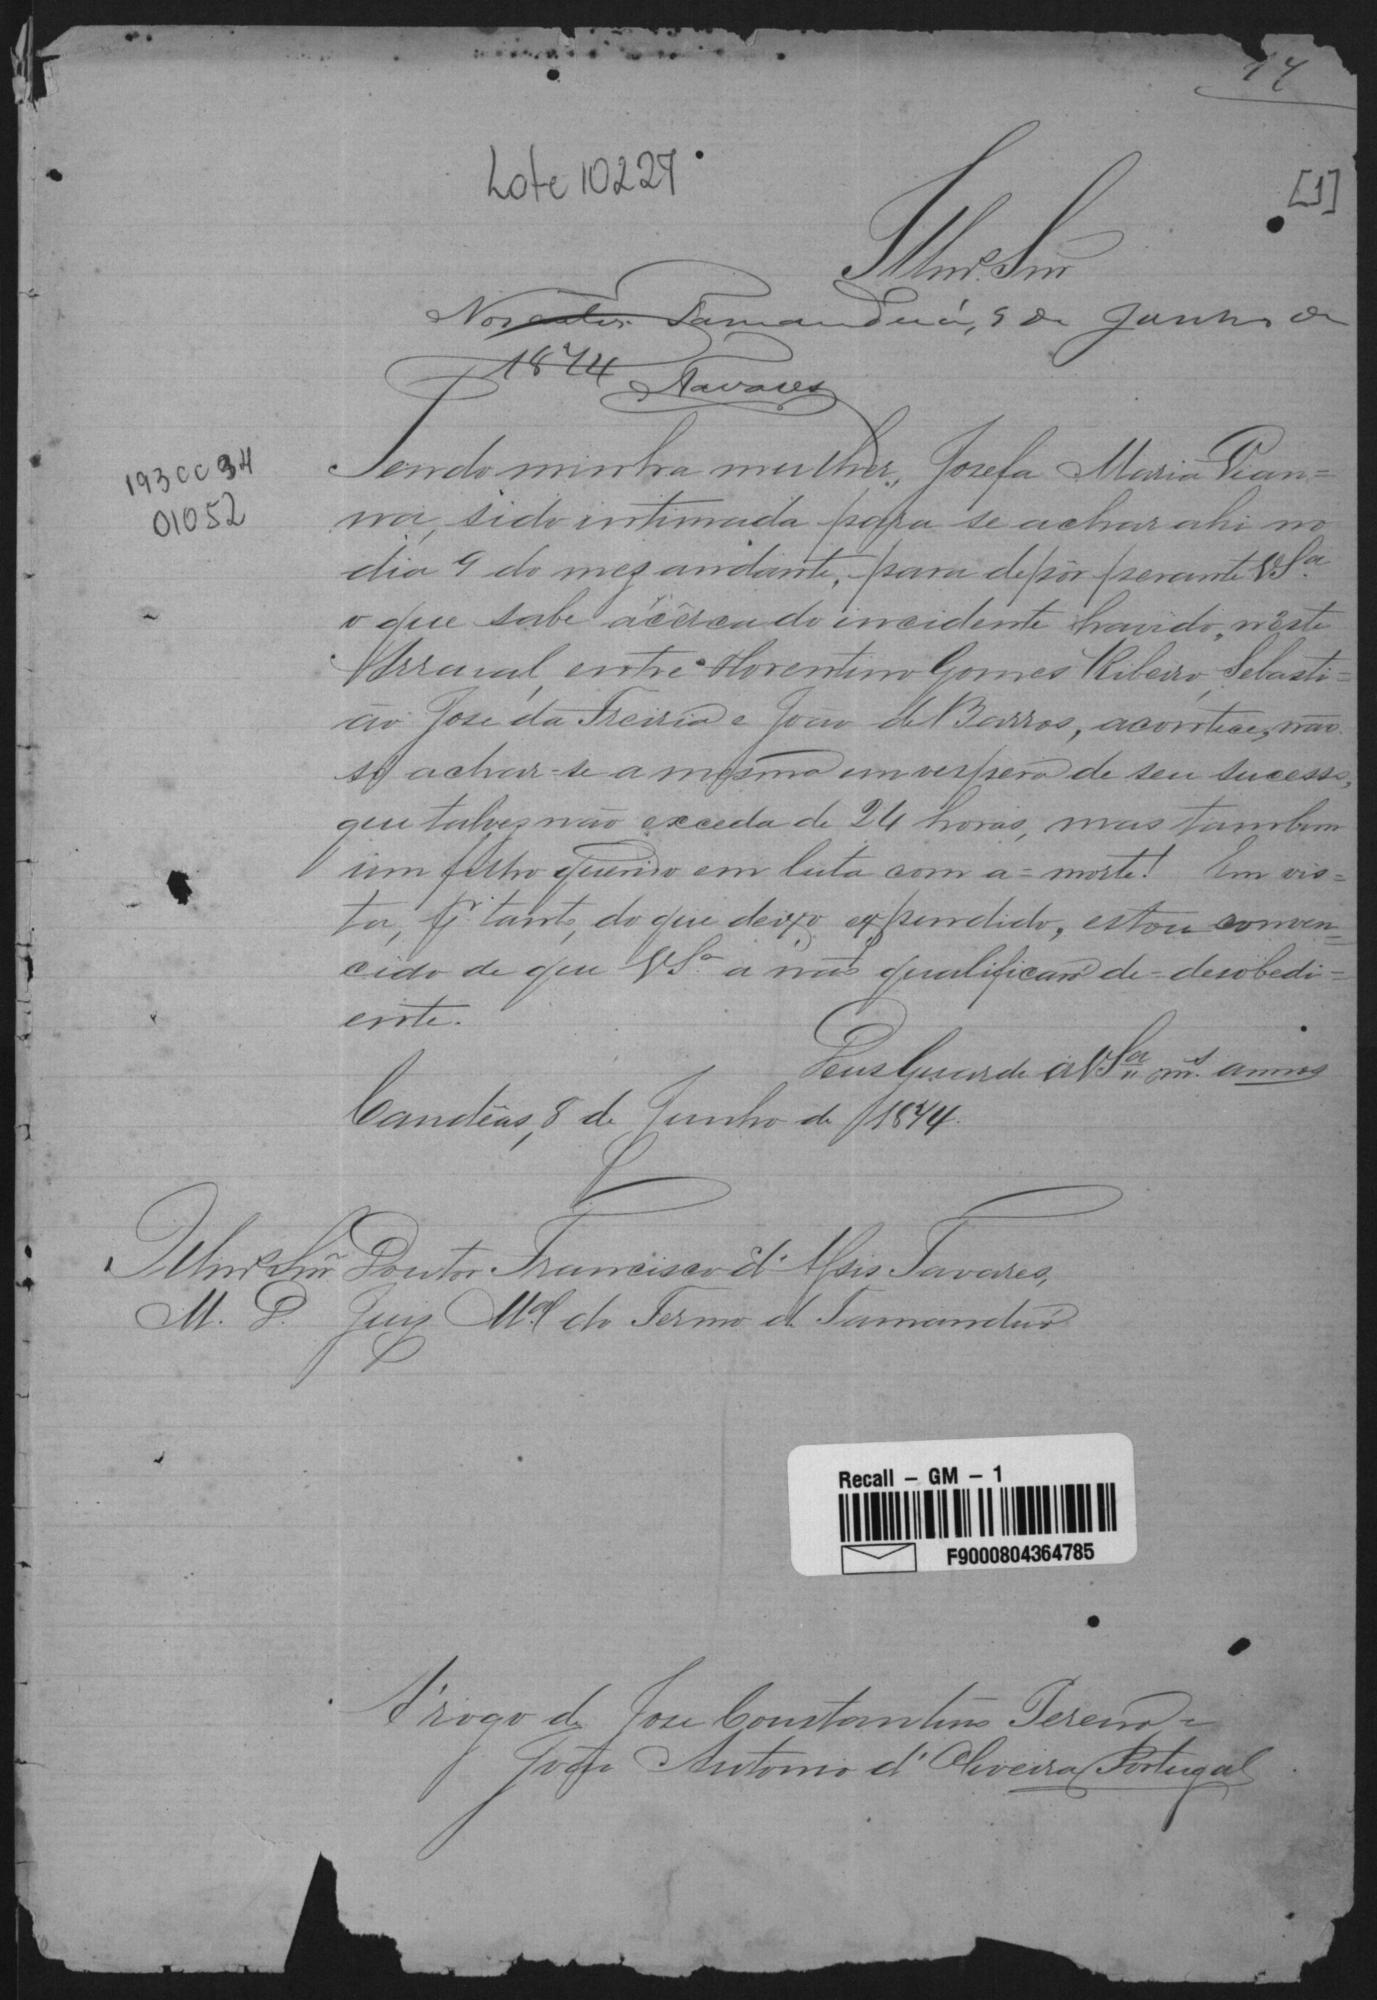 17
Lote 10227
[1]
Illmo. Snr
Nos autos. Tamanduá, 9 de Junho de
1874 Tavares
193 CC 34
01052
Tendo minha mulher, Josefa Maria Vian=
na, sido intimada para se achar ahi no
dia 9 do mez andante, para depôr perante VSa.
o que sabe ácêrca do incidente havido, n'este
Arraial, entre Florentino Gomes Ribeiro, Sebasti=
ão José da Freiria e João de Barros, acontece, não
só achar-se a mesma em vespera de seu sucesso,
que talvez não exceda de 24 horas, mas tambem
um filho querido em luta com a = morte! Em vis=
ta, pr. tanto, do que deixo expendido, estou conven=
cido de que VSa. a não qualificará de = desobedi=
ente.
Deus Guarde a VSa. ms. annos
Candêas, 8 de Junho de 1874.
Illmo. Snr. Doutor Francisco d'Assis Tavares,
M. D. Juiz Mal. do Termo de Tamanduá
Recall - GM - 1
F9000804364785
A'rogo de José Constantino Pereira =
João Antonio d'Oliveira Portugal